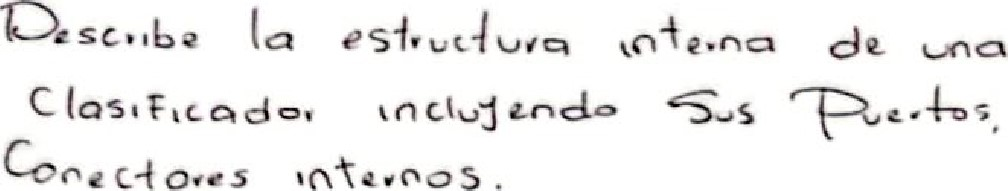 Describe la estructura interna de una
Clasificador incluyendo Sus Puertos,
Conectores internos.